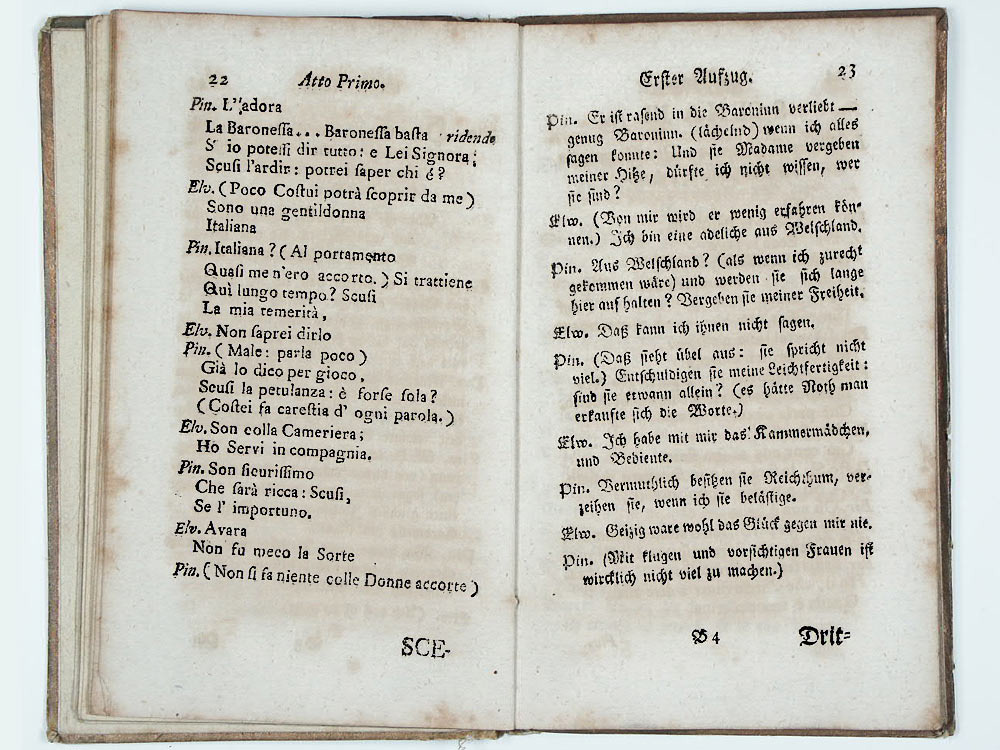 22 Atto Primo.
Pin. L'adora
La Baroneſſa... Baroneſſa baſta ridendo
S' io poteſſi dir tutto: e Lei Signora;
Scuſi l'ardir: potrei ſaper chi é?
Elv. (Poco Coſtui potrà ſcoprir da me)
Sono una gentildonna
Italiana
Pin. Italiana? (Al portamento
Quaſi me n'ero accorto.) Si trattiene
Quì lungo tempo? Scuſi
La mia temerità,
Elv. Non ſaprei dirlo
Pin. (Male: parla poco)
Già lo dico per gioco,
Scuſi la petulanza: è forſe ſola?
(Coſtei fa careſtia d' ogni parola.)
Elv. Son colla Cameriera;
Ho Servi in compagnia.
Pin. Son ſicuriſſimo
Che ſarà ricca: Scuſi,
Se l' importuno.
Elv. Avara
Non fu meco la Sorte
Pin. (Non ſi fa niente colle Donne accorte)
SCE-
Erſter Aufzug. 23
Pin. Er iſt raſend in die Baroninn verliebt —
genug Baroninn. (lächelnd) wenn ich alles
ſagen konnte: Und ſie Madame vergeben
meiner Hitze, dürfte ich nicht wiſſen, wer
ſie ſind?
Elw. (Von mir wird er wenig erfahren kön-
nen.) Ich bin eine adeliche aus Welſchland.
Pin. Aus Welſchland? (als wenn ich zurecht
gekommen wäre) und werden ſie ſich lange
hier auf halten? Vergeben ſie meiner Freiheit.
Elw. Daß kann ich ihnen nicht ſagen.
Pin. (Daß ſieht übel aus: ſie ſpricht nicht
viel.) Entſchuldigen ſie meine Leichtfertigkeit:
ſind ſie etwann allein? (es hätte Noth man
erkaufte ſich die Worte.)
Elw. Ich habe mit mir das Kammermädchen,
und Bediente.
Pin. Vermuthlich beſitzen ſie Reichthum, ver-
zeihen ſie, wenn ich ſie beläſtige.
Elw. Geizig ware wohl das Glück gegen mir nie.
Pin. (Mit klugen und vorſichtigen Frauen iſt
wircklich nicht viel zu machen.)
B 4 Drit-